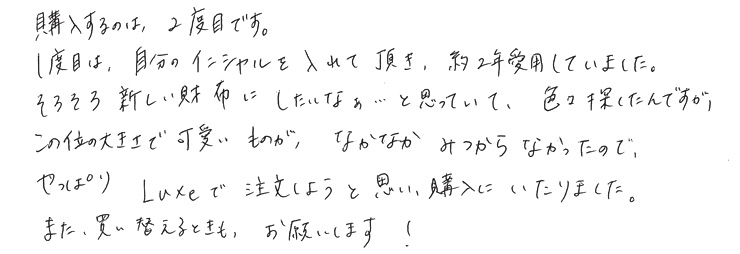 購入するのは、2度目です。
1度目は、自分のイニシャルを入れて頂き、約2年愛用していました。
そろそろ新しい財布にしたいなぁ…と思っていて、色々探したんですが、
この位の大きさで可愛いものが、なかなかみつからなかったので、
やっぱりLuxeで注文しようと思い、購入にいたりました。
また、買い替えるときも、お願いします!